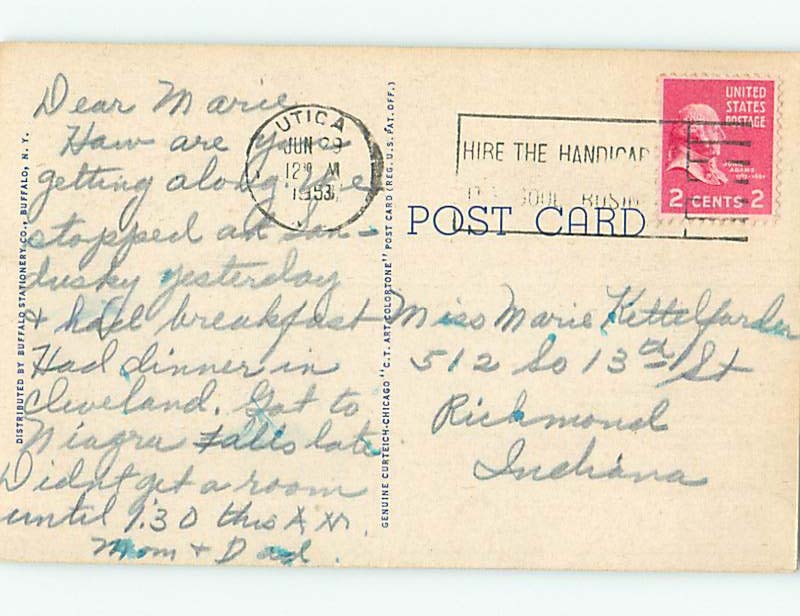 Dear Marie
How are you
getting along We
stopped at San-
dusky yesterday
& had breakfast
Had dinner in
Cleveland. Got to
Niagra Falls late
Didnt get a room
until 1:30 this A.M.
Mom & Dad.
DISTRIBUTED BY BUFFALO STATIONERY CO., BUFFALO, N. Y.
GENUINE CURTEICH-CHICAGO "C. T. ART-COLORTONE" POST CARD (REG. U. S. PAT. OFF.)
UTICA
JUN 9
12 M
1953
HIRE THE HANDICAP
GOOD BUSIN
UNITED
STATES
POSTAGE
JOHN
ADAMS
2 CENTS 2
POST CARD
Miss Marie Kettelgarden
512 So 13th St
Richmond
Indiana